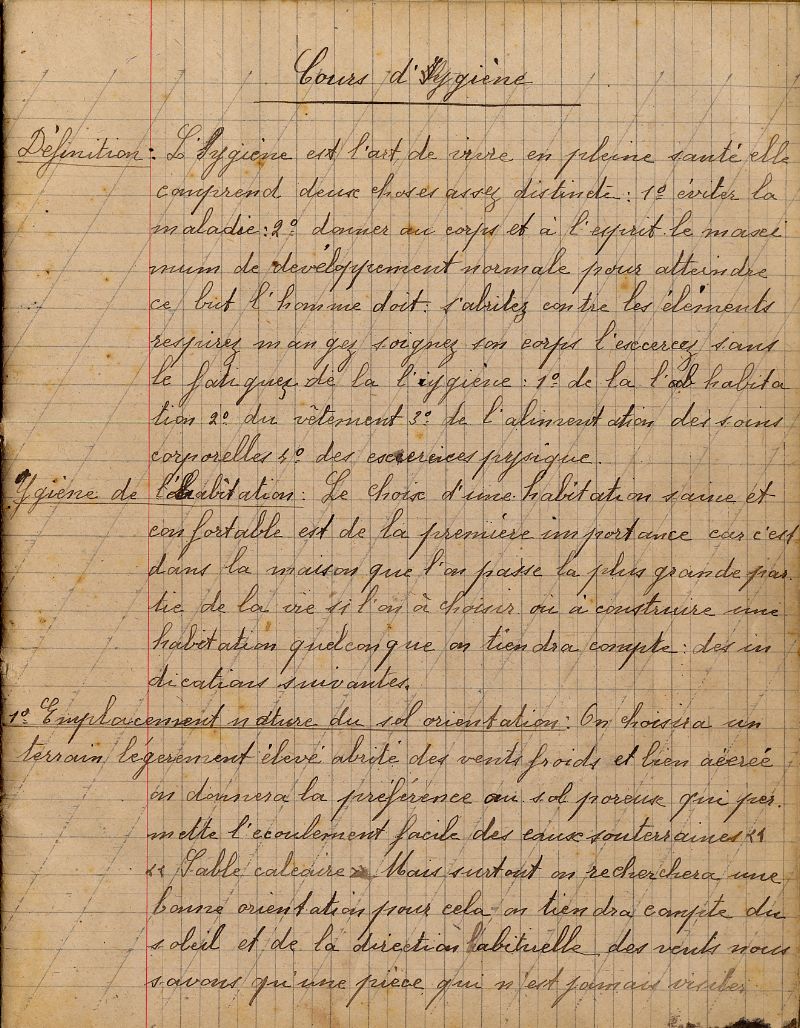 Cours d'Hygiène
Définition: L'Hygiène est l'art de vivre en pleine santé elle
comprend deux choses assez distincte: 1º éviter la
maladie: 2º donner au corps et à l'esprit le maxi
mum de développement normale pour atteindre
ce but l'homme doit: s'abritez contre les éléments
respirez mangez soignez son corps l'excercez sans
le de la l'iygiène: 1º de la habita
tion 2º du vêtement 3º de l'alimentation des soins
corporelles 4º des prysique.
Ygiène de l'habitation: Le choix d'une habitation saine et
confortable est de la première importance car c'est
dans la maison que l'on passe la plus grande par
tie de la vie si l'on à choisir où à construire une
habitation quelconque on tiendra compte: des in
dications suivantes.
1º Emplacement nature du sol orientation: On choisira un
terrain légèrement élevé abrité des vents froids et bien aéereé
on donnera la préférence au sol poreux qui per
mette l'écoulement facile des eaux souterraines «
« Sable calcaire » Mais surtout on recherchera une
bonne orientation pour cela on tiendra compte du
soleil et de la direction habituelle des vents nous
savons qu'une pièce qui n'est jamais visiter